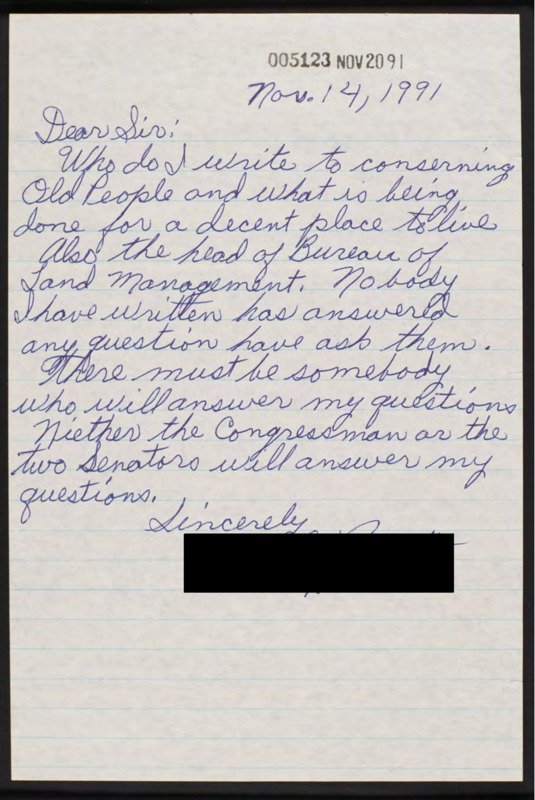 005123 NOV2091
Nov. 14, 1991
Dear Sir:
Who do I write to conserning
Old People and what is being
done for a decent place to live
Also the head of Bureau of
Land Management. Nobody
I have written has answered
any question have ask them.
There must be somebody
who will answer my questions
Niether the Congressman or the
two Senators will answer my
questions.
Sincerely